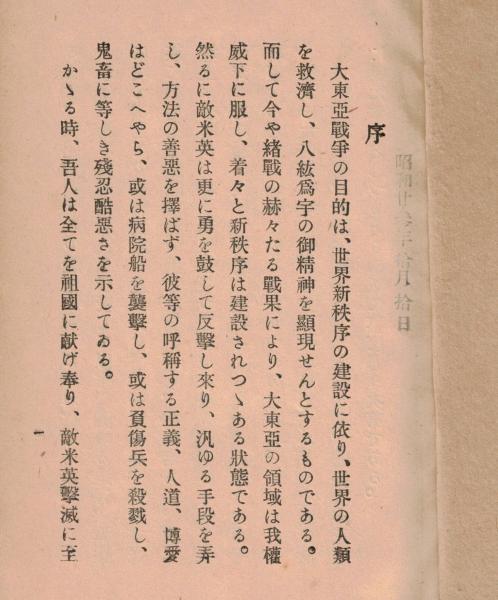 序
大東亞戰爭の目的は、世界新秩序の建設に依り、世界の人類
を救濟し、八紘爲宇の御精神を顯現せんとするものである。
而して今や緒戰の赫々たる戰果により、大東亞の領域は我權
威下に服し、着々と新秩序は建設されつゝある狀態である。
然るに敵米英は更に勇を鼓して反擊し來り、汎ゆる手段を弄
し、方法の善惡を擇ばず、彼等の呼稱する正義、人道、博愛
はどこへやら、或は病院船を襲擊し、或は負傷兵を殺戮し、
鬼畜に等しき殘忍酷惡さを示してゐる。
かゝる時、吾人は全てを祖國に献げ奉り、敵米英擊滅に主
一